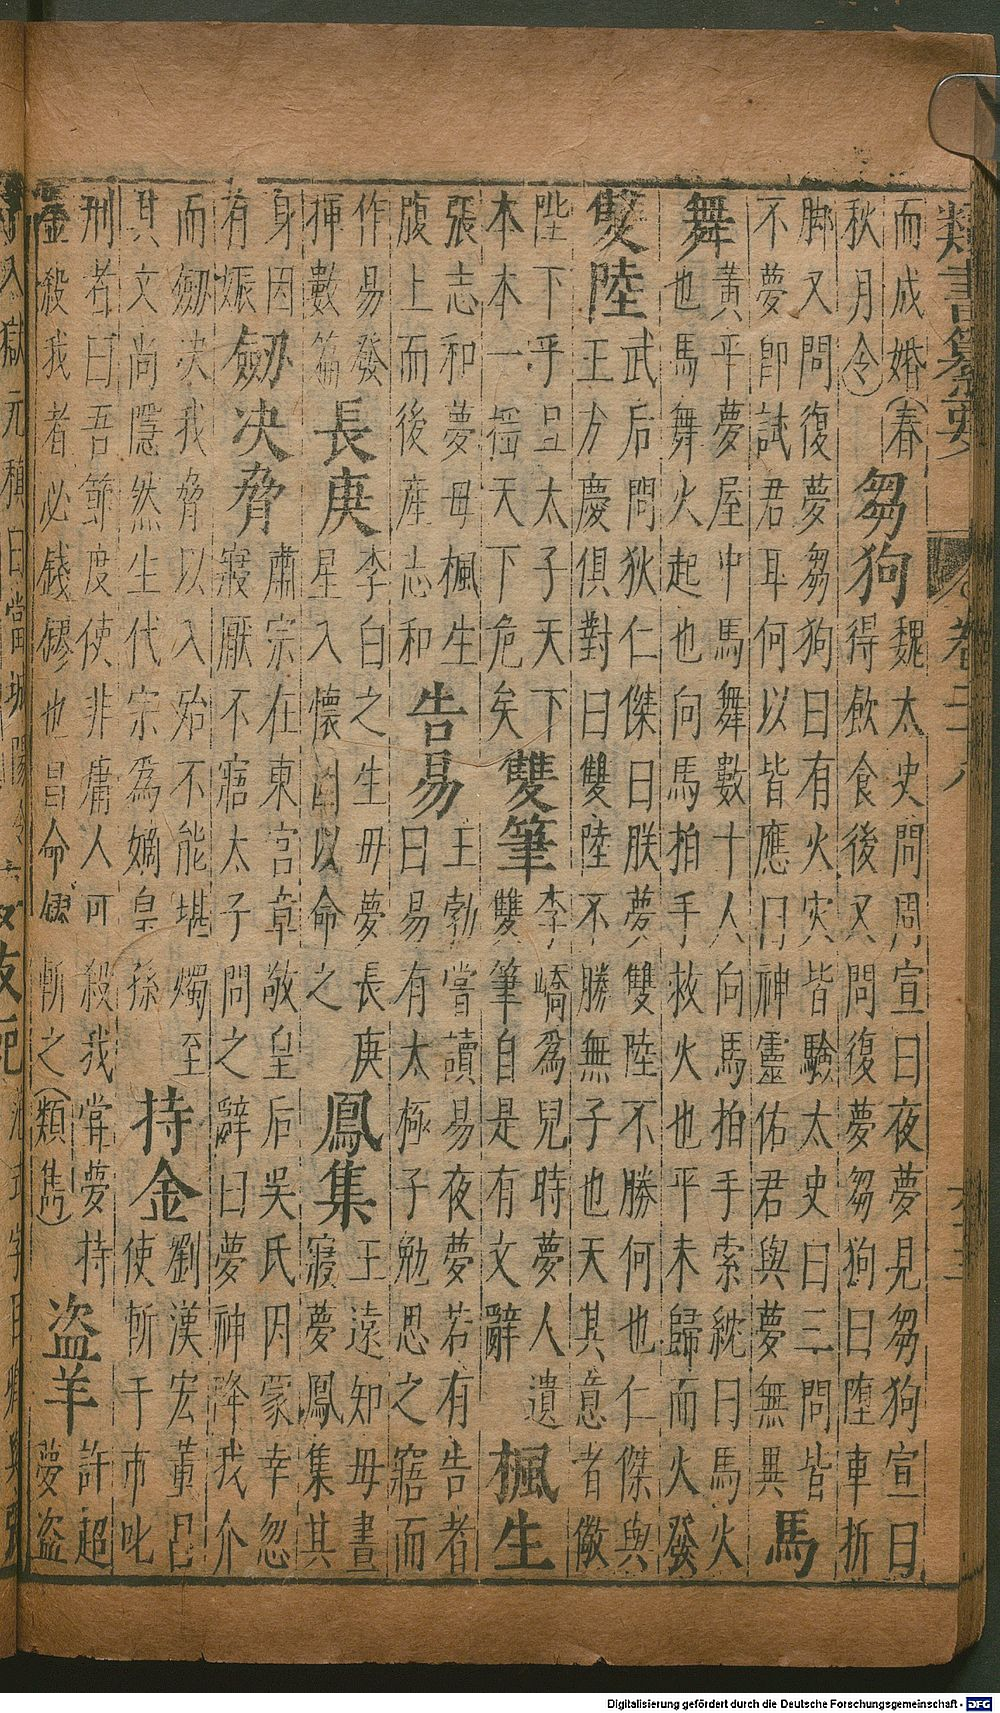 類書纂要
而成婚(春
秋月令)
芻狗
魏太史問周宣曰夜夢見芻狗宣曰
得飲食後又問復夢芻狗曰墮車折
脚又問復夢芻狗曰有火灾皆驗太史曰三問皆
不夢即試君耳何以皆應曰神靈佑君與夢無異
馬
舞
黃平夢屋中馬舞數十人向馬拍手索紞曰馬火
也馬舞火起也向馬拍手救火也平未歸而火發
雙陸
武后問狄仁傑曰朕夢雙陸不勝何也仁傑與
王方慶俱對曰雙陸不勝無子也天其意者儆
陛下乎且太子天下
本本一揺天下危矣
雙筆
李嶠爲兒時夢人遺
雙筆自是有文辭
楓生
張志和夢母楓生
腹上而後產志和
告易
王勃嘗讀易夜夢若有告者
曰易有太極子勉思之寤而
作易發
揮數篇
長庚
李白之生母夢長庚
星入懷因以命之
鳳集
王遠知母晝
寢夢鳳集其
身因
有娠
劒决脅
肅宗在東宮章敬皇后吳氏因蒙幸忽
寢厭不寤太子問之辭曰夢神降我介
而劒决我脅以入殆不能堪燭至
其文尚隱然生代宗為嫡皇孫
持金
劉漢宏董昌
使斬于市叱
刑者曰吾節度使非庸人可殺我嘗夢持
金殺我者必錢鏐也昌命鏐斬之(類雋)
盗羊
許超
夢盗
Digitalisierung gefördert durch die Deutsche Forschungsgemeinschaft - DFG